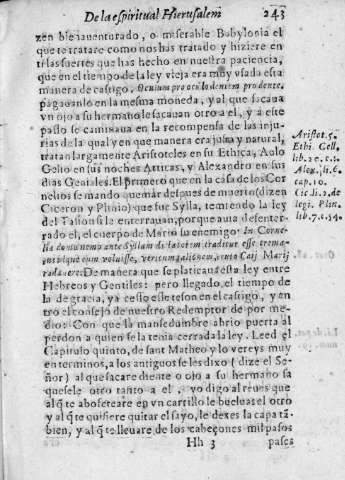 De la espiritual Hierusalem 243
zen bie jauenturado, o miserable Babylonia el
que te tratare como nos has tratado y hiziere en
ti las suertes que has hecho en nuestra paciencia,
que en el tiempo de la ley vieja era muy vsada esta
manera de castigo. Oculum pro oculo dentem pro dente.
pagauanlo en la mesma moneda, y al que sacaua
vn ojo a su hermano le sacauan otro a el, y a este
passo se caminaua en la recompensa de las inju-
rias de la qual y en que manera era justa y natural,
tratan largamente Aristoteles en su Ethica, Aulo
Gelio en sus noches Atticas, y Alexandro en sus
dias Geniales. El primero que en la casa de los Cor-
nelios se mando quemar despues de muerto (dizen
Ciceron y Plinio) que fue Sylla, temiendo la ley
del Talion si le enterrauan, porque auia desenter-
rado el, el cuerpo de Mario su enemigo In Corne-
lia domo nemo ante Syllam dictatorem traditur esse crema-
idque eum voluisse, veritum talionem, eruto Caij Marij
cadauere: De manera que se platicaua esta ley entre
Hebreos y Gentiles: pero llegado el tiempo de
la de gracia, ya cesso este teson en el castigo, y an
tro el consejo de nuestro Redemptor de por me-
dio: Con que la mansedumbre abrio puerta al
perdon a quien se la tenia cerrada la ley. Leed el
Capitulo quinto, de sant Matheo y lo vereys muy
en terminos, a los antiguos se les dixo (dize el Se-
ñor) al que sacare diente o ojo a su hermano sa
quesele otro tanto a el, yo digo al reues que
al q̃ te abofeteare en vn carrillo le bueluas el otro
y al q̃ te quisiere quitar el sayo, le dexes la capa tã-
bien, y al q̃ te lleuare de los cabeçones mil passos
Hh 3 passes
Aristot. 5.
Ethi. Gell.
lib. 20. c. 1.
Alex. li. 6.
cap. 10.
Cic. li. 2. de
legi. Plin.
lib. 7. c. 54.